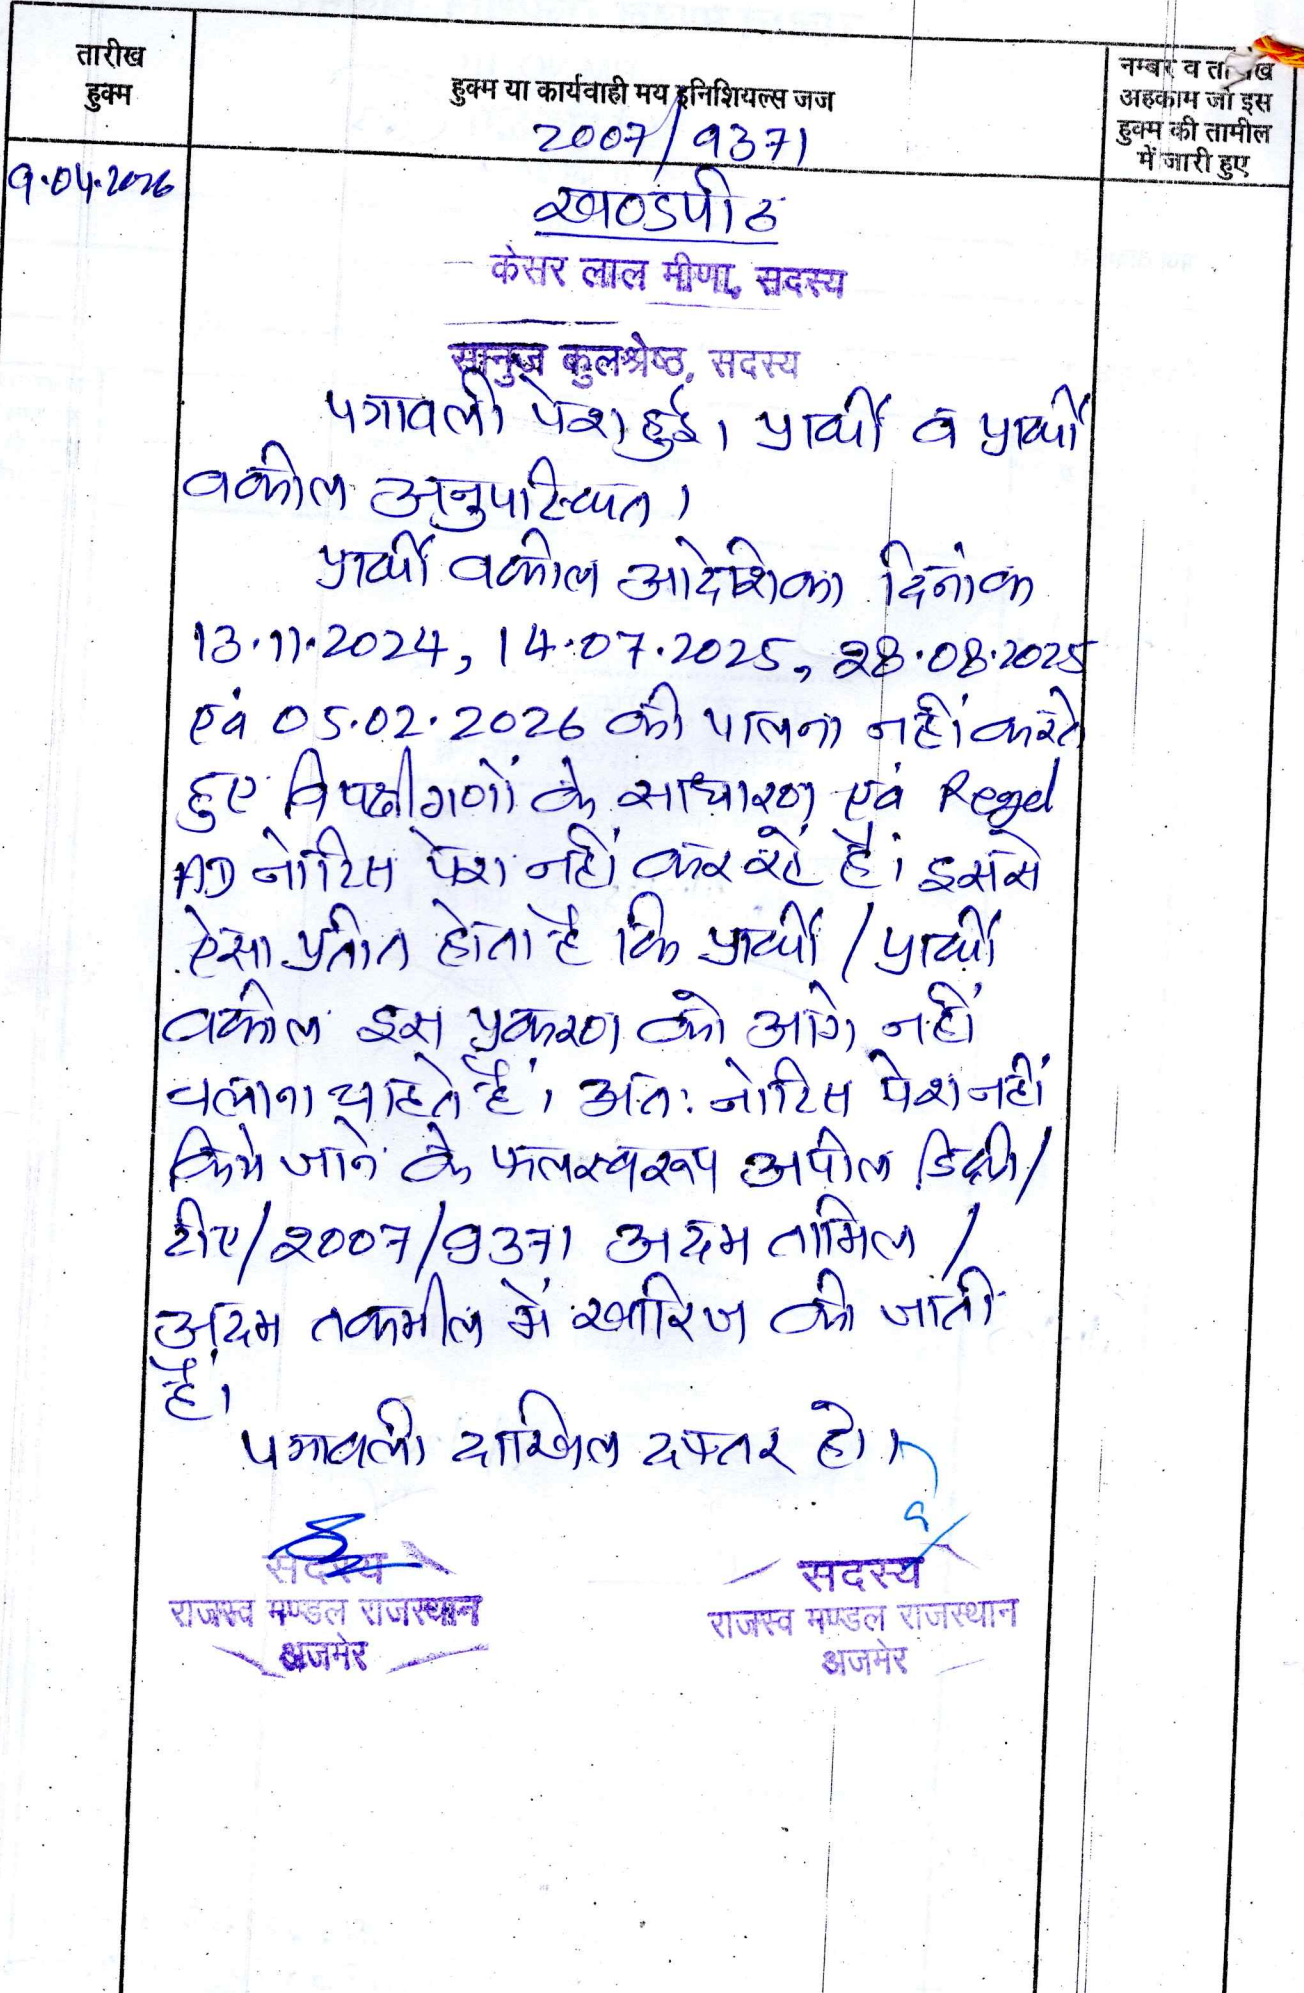 तारीख
हुक्म
हुक्म या कार्यवाही मय इनिशियल्स जज
नम्बर व तारीख
अहकाम जो इस
हुक्म की तामील
में जारी हुए
2007/9371
9.04.2026
खण्डपीठ
केसर लाल मीणा, सदस्य
सानुज कुलश्रेष्ठ, सदस्य
पत्रावली पेश हुई। प्रार्थी व प्रार्थी
वकील अनुपस्थित।
प्रार्थी वकील आदेशिका दिनांक
13.11.2024, 14.07.2025, 28.08.2025
एवं 05.02.2026 की पालना नहीं करते
हुए विपक्षीगणों के साधारण एवं Regd
AD नोटिस पेश नहीं कर रहे हैं। इससे
ऐसा प्रतीत होता है कि प्रार्थी / प्रार्थी
वकील इस प्रकरण को आगे नहीं
चलाना चाहते हैं। अतः नोटिस पेश नहीं
किये जाने के फलस्वरूप अपील डिक्री/
टीए/2007/9371 अदम तामिल /
अदम तकमील में खारिज की जाती
है।
पत्रावली दाखिल दफ्तर हो।
सदस्य
राजस्व मण्डल राजस्थान
अजमेर
सदस्य
राजस्व मण्डल राजस्थान
अजमेर